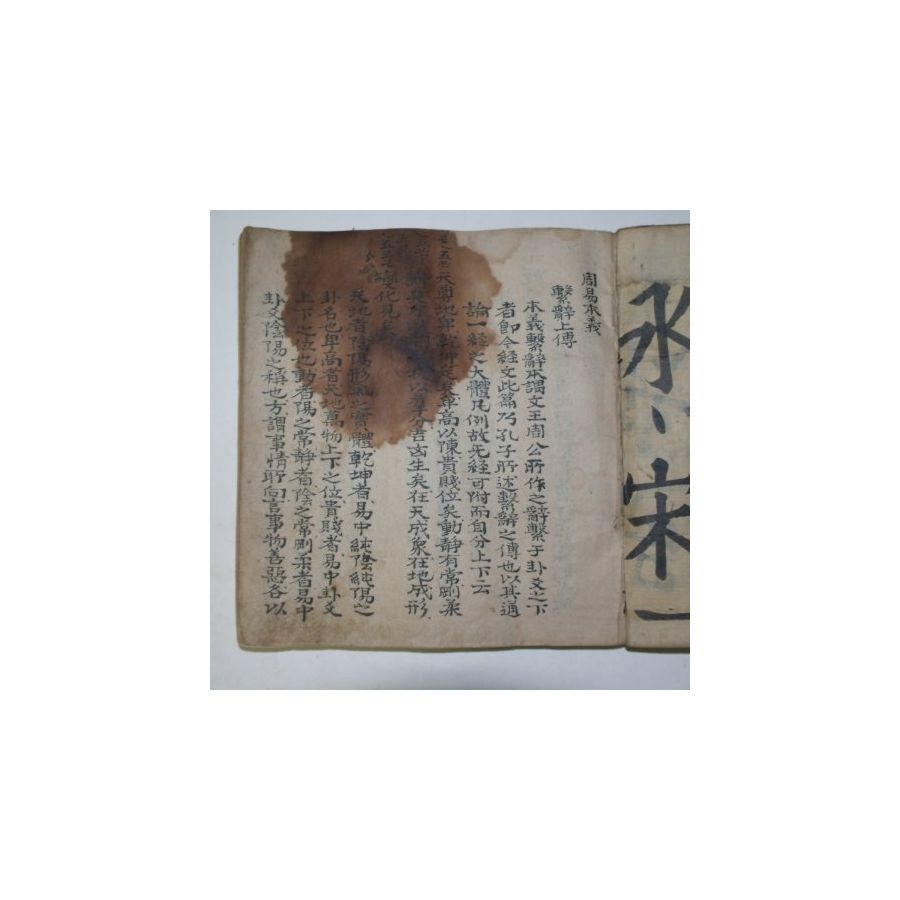 周易本義
繫辭上傳
本義繫辭本謂文王周公所作之辭繫于卦爻之下
者卽今經文此篇乃孔子所述繫辭之傳也以其通
論一經之大體凡例故无經可附而自分上下云
天尊地卑乾坤定矣卑高以陳貴賤位矣動靜有常剛柔
以羣分吉凶生矣在天成象在地成形
變化見矣
天地者陰陽形氣之實體乾坤者易中純陰純陽之
卦名也卑高者天地萬物上下之位貴賤者易中卦爻
上下之位也動者陽之常靜者陰之常剛柔者易中
卦爻陰陽之稱也方謂事情所向言事物善惡各以
宋